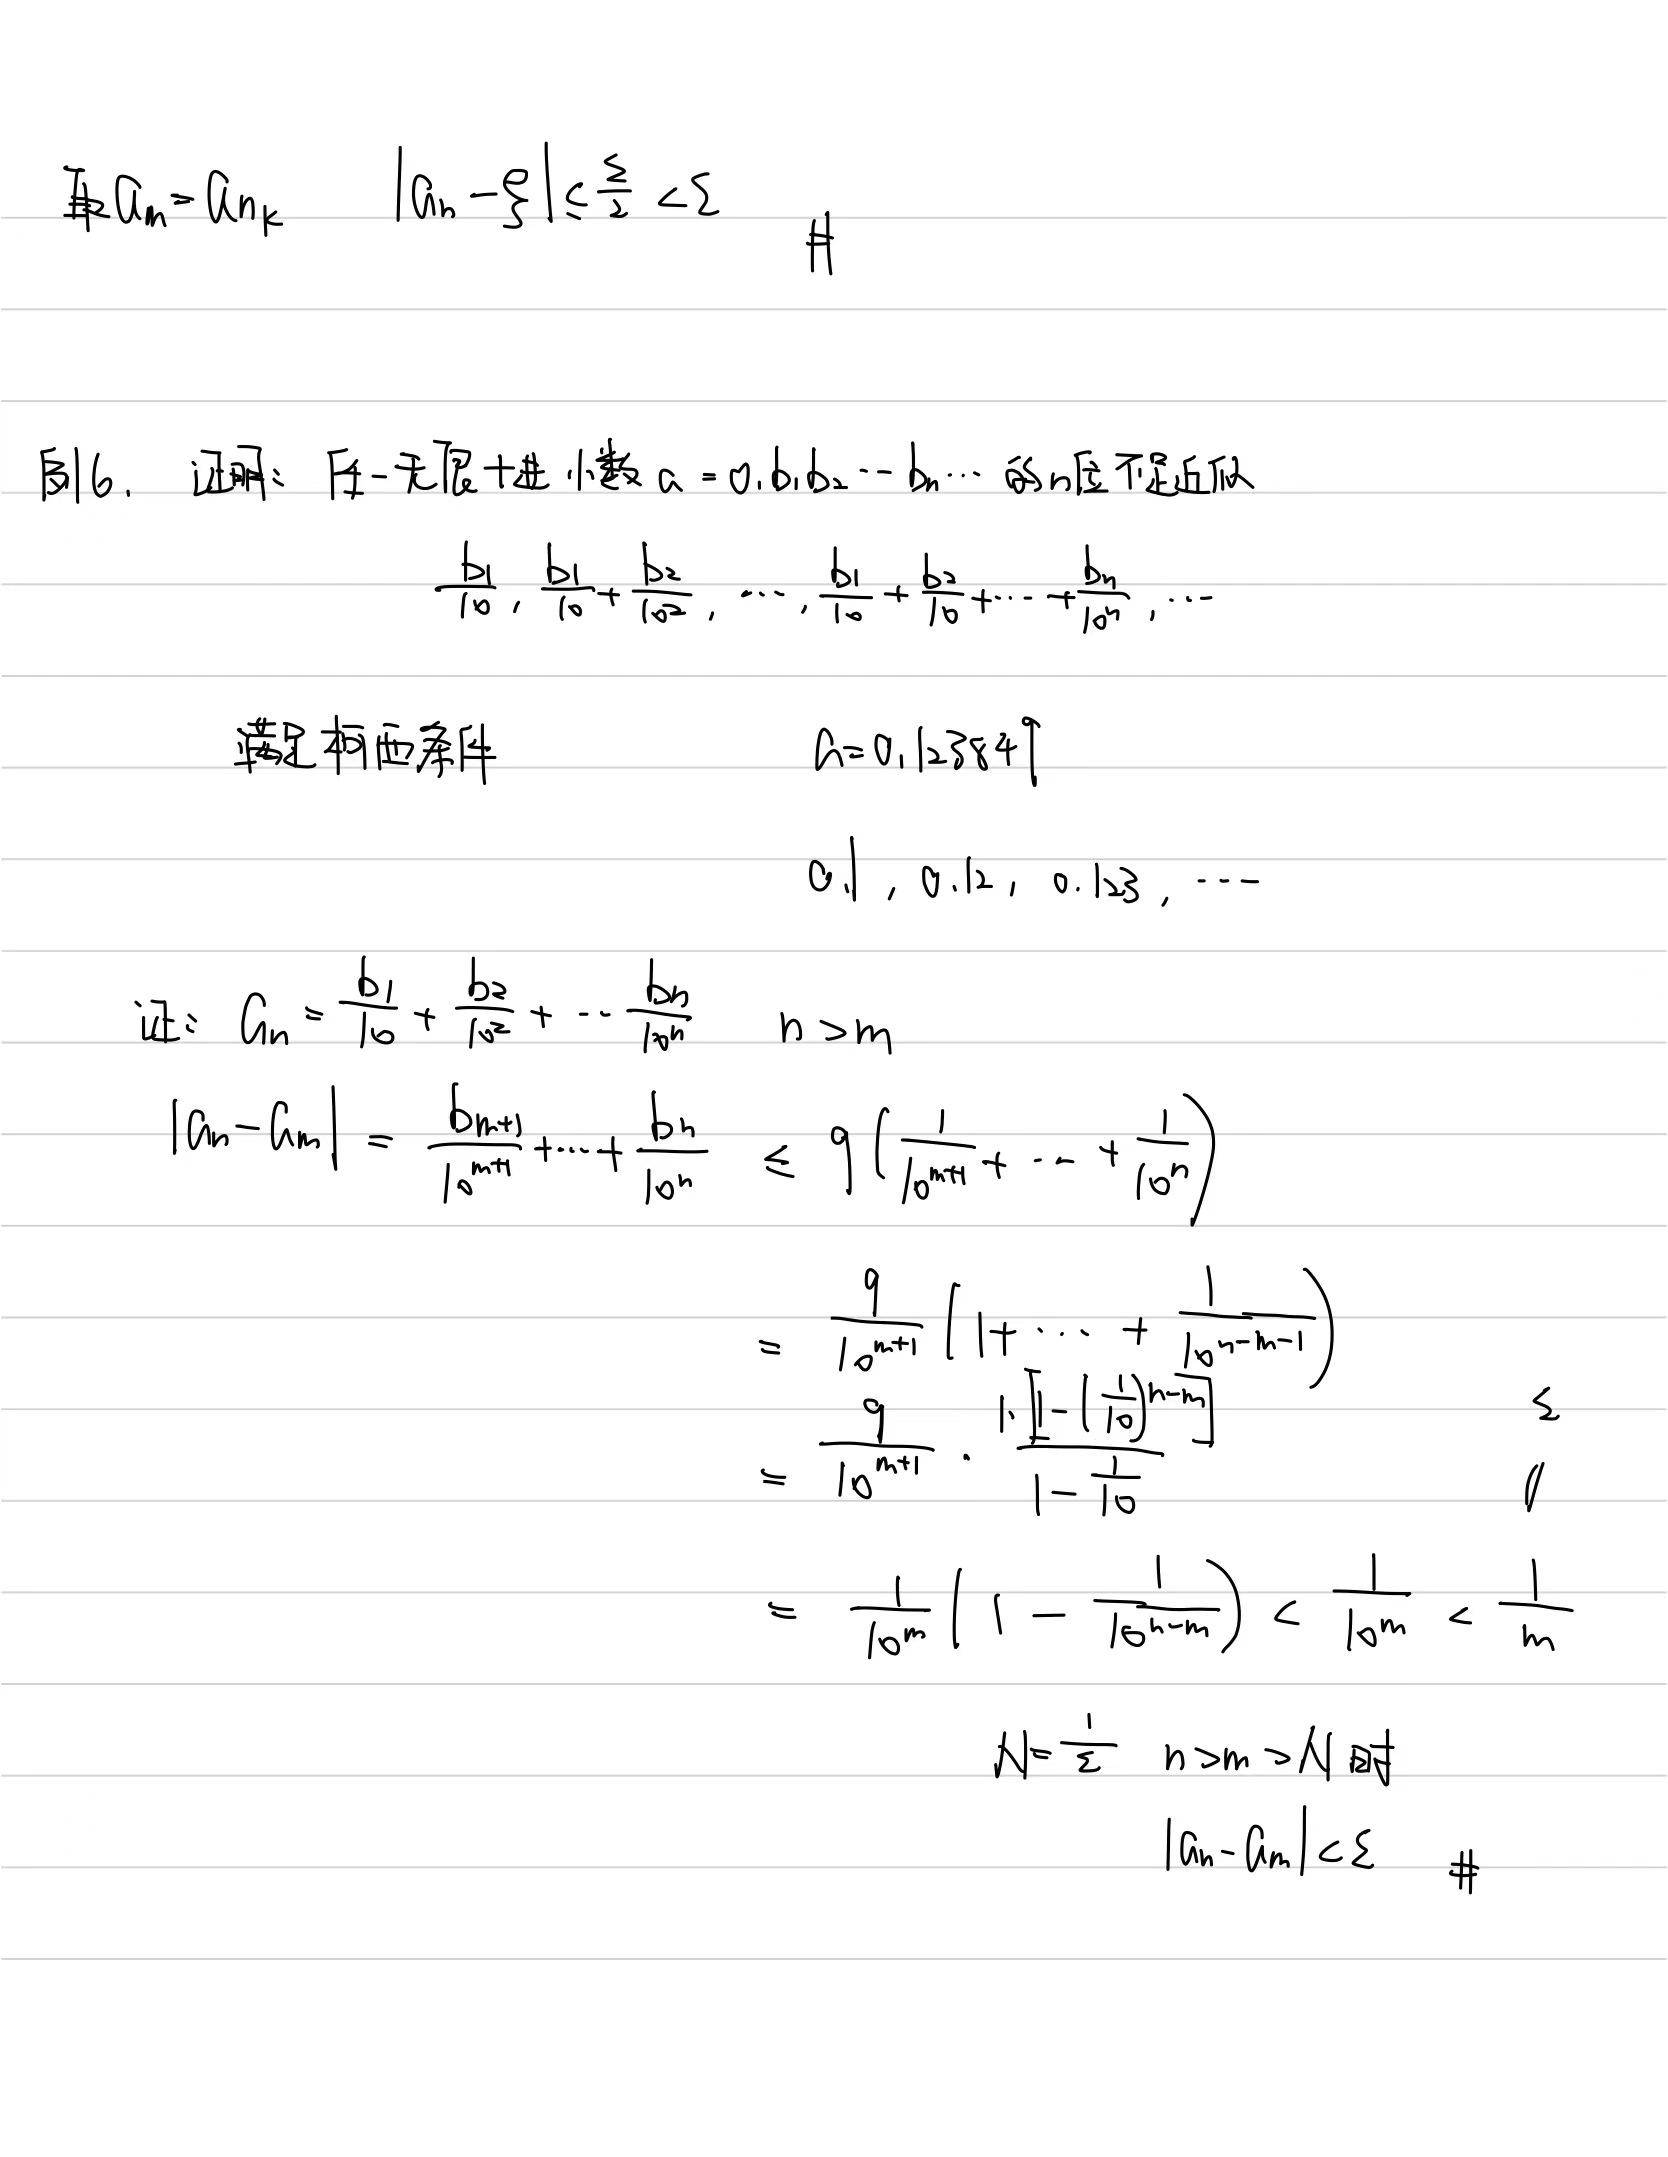 取 aₘ = aₙₖ |aₙ - ξ| ≤ ε/2 < ε #
例6. 证明: 任一无限十进小数 a = 0.b₁b₂⋯bₙ⋯ 的n位不足近似
b₁/10, b₁/10 + b₂/10², ⋯, b₁/10 + b₂/10 + ⋯ + bₙ/10ⁿ, ⋯
满足柯西条件 a = 0.123849
0.1, 0.12, 0.123, ⋯
证: aₙ = b₁/10 + b₂/10² + ⋯ bₙ/10ⁿ n > m
|aₙ - aₘ| = bₘ₊₁/10^(m+1) + ⋯ + bₙ/10ⁿ ≤ 9(1/10^(m+1) + ⋯ + 1/10ⁿ)
= 9/10^(m+1) (1 + ⋯ + 1/10^(n-m-1))
= 9/10^(m+1) · 1·[1 - (1/10)^(n-m)]/(1 - 1/10) ε
= 1/10^m (1 - 1/10^(n-m)) < 1/10^m < 1/m
N = 1/ε n > m > N 时
|aₙ - aₘ| < ε #